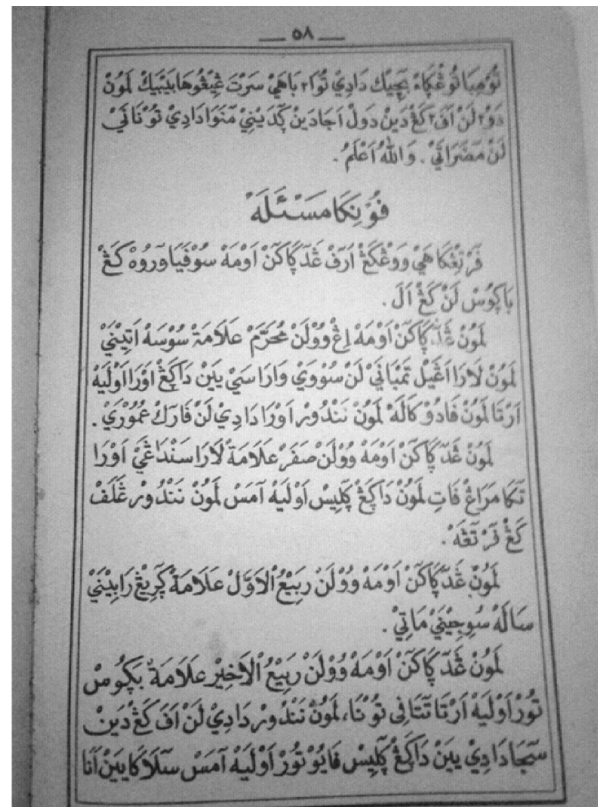 — ٥٨ —
تُوْمِبَا تُوڠْݢَاءْ بَچِيْك دَادِيْ تُوَا٢ بَاهَيْ سَرْتَ غِيڤُوهَا بَيْبَيْكْ لَمُوْنْ
دَوُ٢ لَنْ اَڤَ٢ كَڠْ دَيْنْ دَوَلْ اَجَادَيْنْ ݢَدَيْنِيْ مَنَوَا دَادِيْ تُوْنَانَيْ
لَنْ مَضَرَاتَيْ . وَاللهُ اَعْلَمُ .
فُوْنِيكَا مَسْئَلَهْ
فَرْتِڠْكَاهَيْ وَوْڠْ كَڠْ اَرَڤْ ڠَدّݢَاكَنْ اَوْمَهْ سُوْفَيَا وَرُوهْ كَڠْ
بَاݢُوسْ لَنْ كَڠْ اَلَ .
لَمُونْ ڠَدّݢَاكَنْ اَوْمَهْ اِڠْ وُوْلَنْ مُحَرَّمْ عَلَامَةْ سُوْسَهْ اَتِيْنَيْ
لَمُونْ لَارَا اَڠَيْلْ تَمْبَانَيْ لَنْ سُوْوَيْ وَارَاسَيْ يَيْنْ دَاݢَڠْ اَوْرَا اَوْلَيْهْ
اَرْتَا لَمُونْ فَادُوْ كَالَهْ لَمُونْ نَنْدُوْرْ اَوْرَا دَادِيْ لَنْ فَارَكْ عُمُوْرَيْ .
لَمُونْ ڠَدّݢَاكَنْ اَوْمَهْ وُوْلَنْ صَفَرْ عَلَامَةْ لَارَا سَنْدَاڠَيْ اَوْرَا
تَكَا مَرَاڠْ فَاتِ لَمُونْ دَاݢَڠْ ݢَلِيسْ اَوْلَيْهْ اَمَسْ لَمُونْ نَنْدُوْرْ غَلَڤْ
كَڠْ فَرْتَڠَهْ .
لَمُونْ ڠَدّݢَاكَنْ اَوْمَهْ وُوْلَنْ رَبِيْعُ الْاَوَّلْ عَلَامَةْ ݢَرِيْڠْ رَابِيْنَيْ
سَالَهْ سُوِجِيْنَيْ مَاتِيْ .
لَمُونْ ڠَدّݢَاكَنْ اَوْمَهْ وُوْلَنْ رَبِيْعُ الْاَخِيْرْ عَلَامَةْ بَݢُوسْ
تُوْرْ اَوْلَيْهْ اَرْتَا تَتَافِى تُوْنَا، لَمُونْ نَنْدُوْرْ دَادِيْ لَنْ اَڤَ كَڠْ دَيْنْ
سَجَا دَادِيْ يَيْنْ دَاݢَڠْ ݢَلِيسْ فَايُوْ تُوْرْ اَوْلَيْهْ اَمَسْ سَلَاكَا يَيْنْ اَنَا